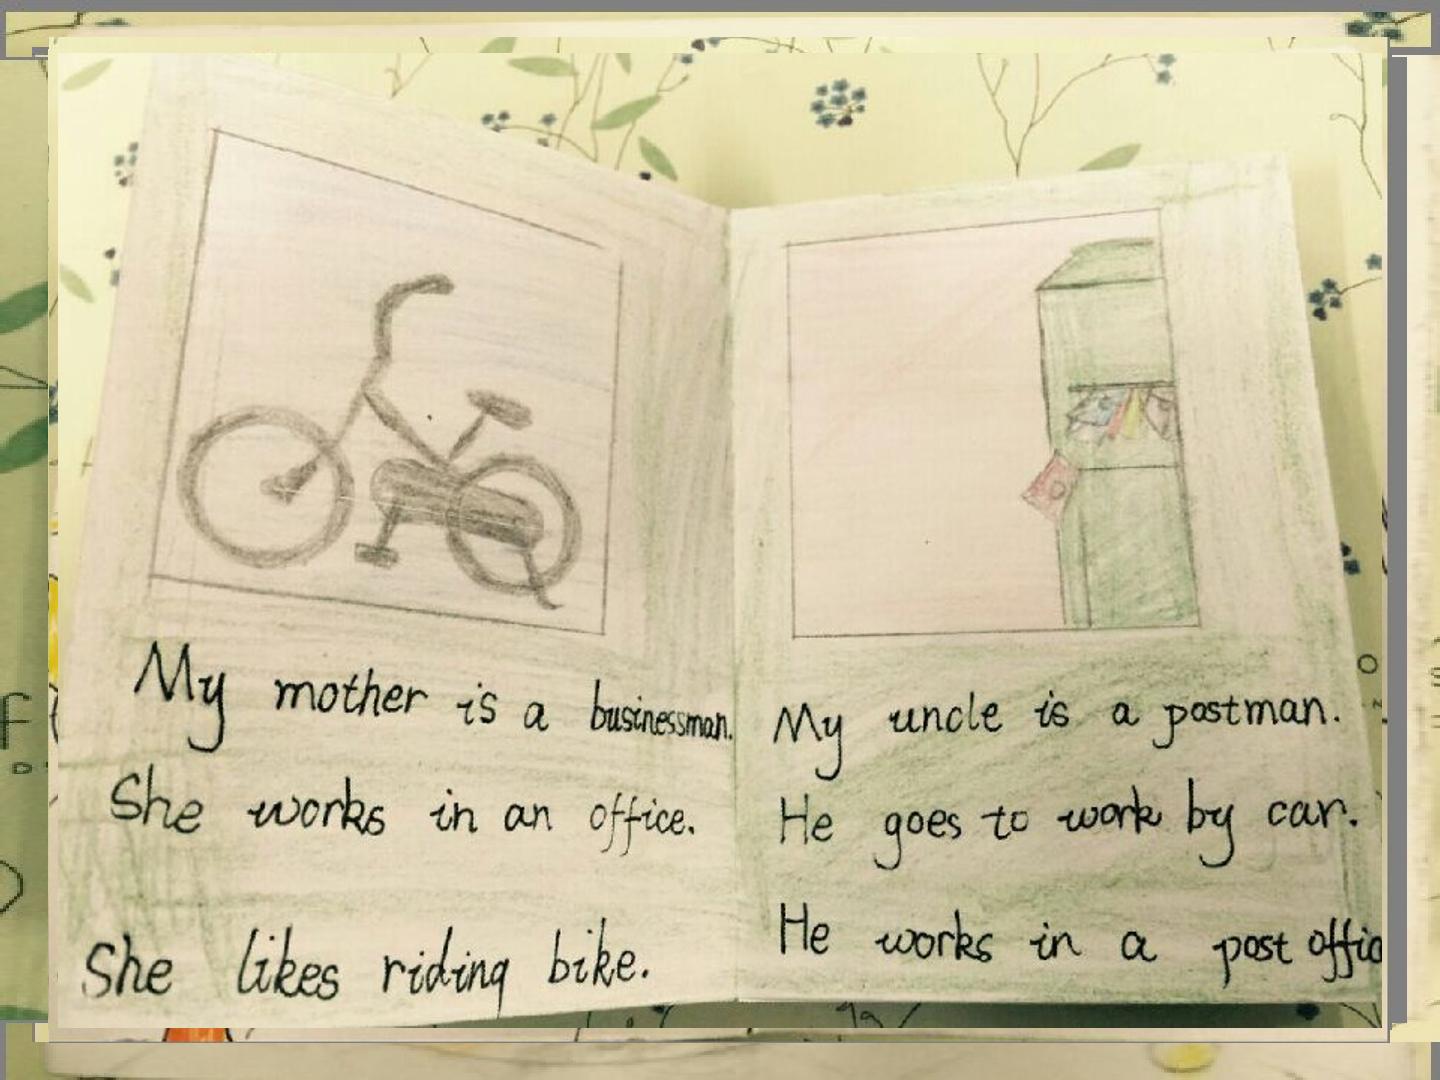 My mother is a businessman.
She works in an office.
She likes riding bike.
My uncle is a postman.
He goes to work by car.
He works in a post offic